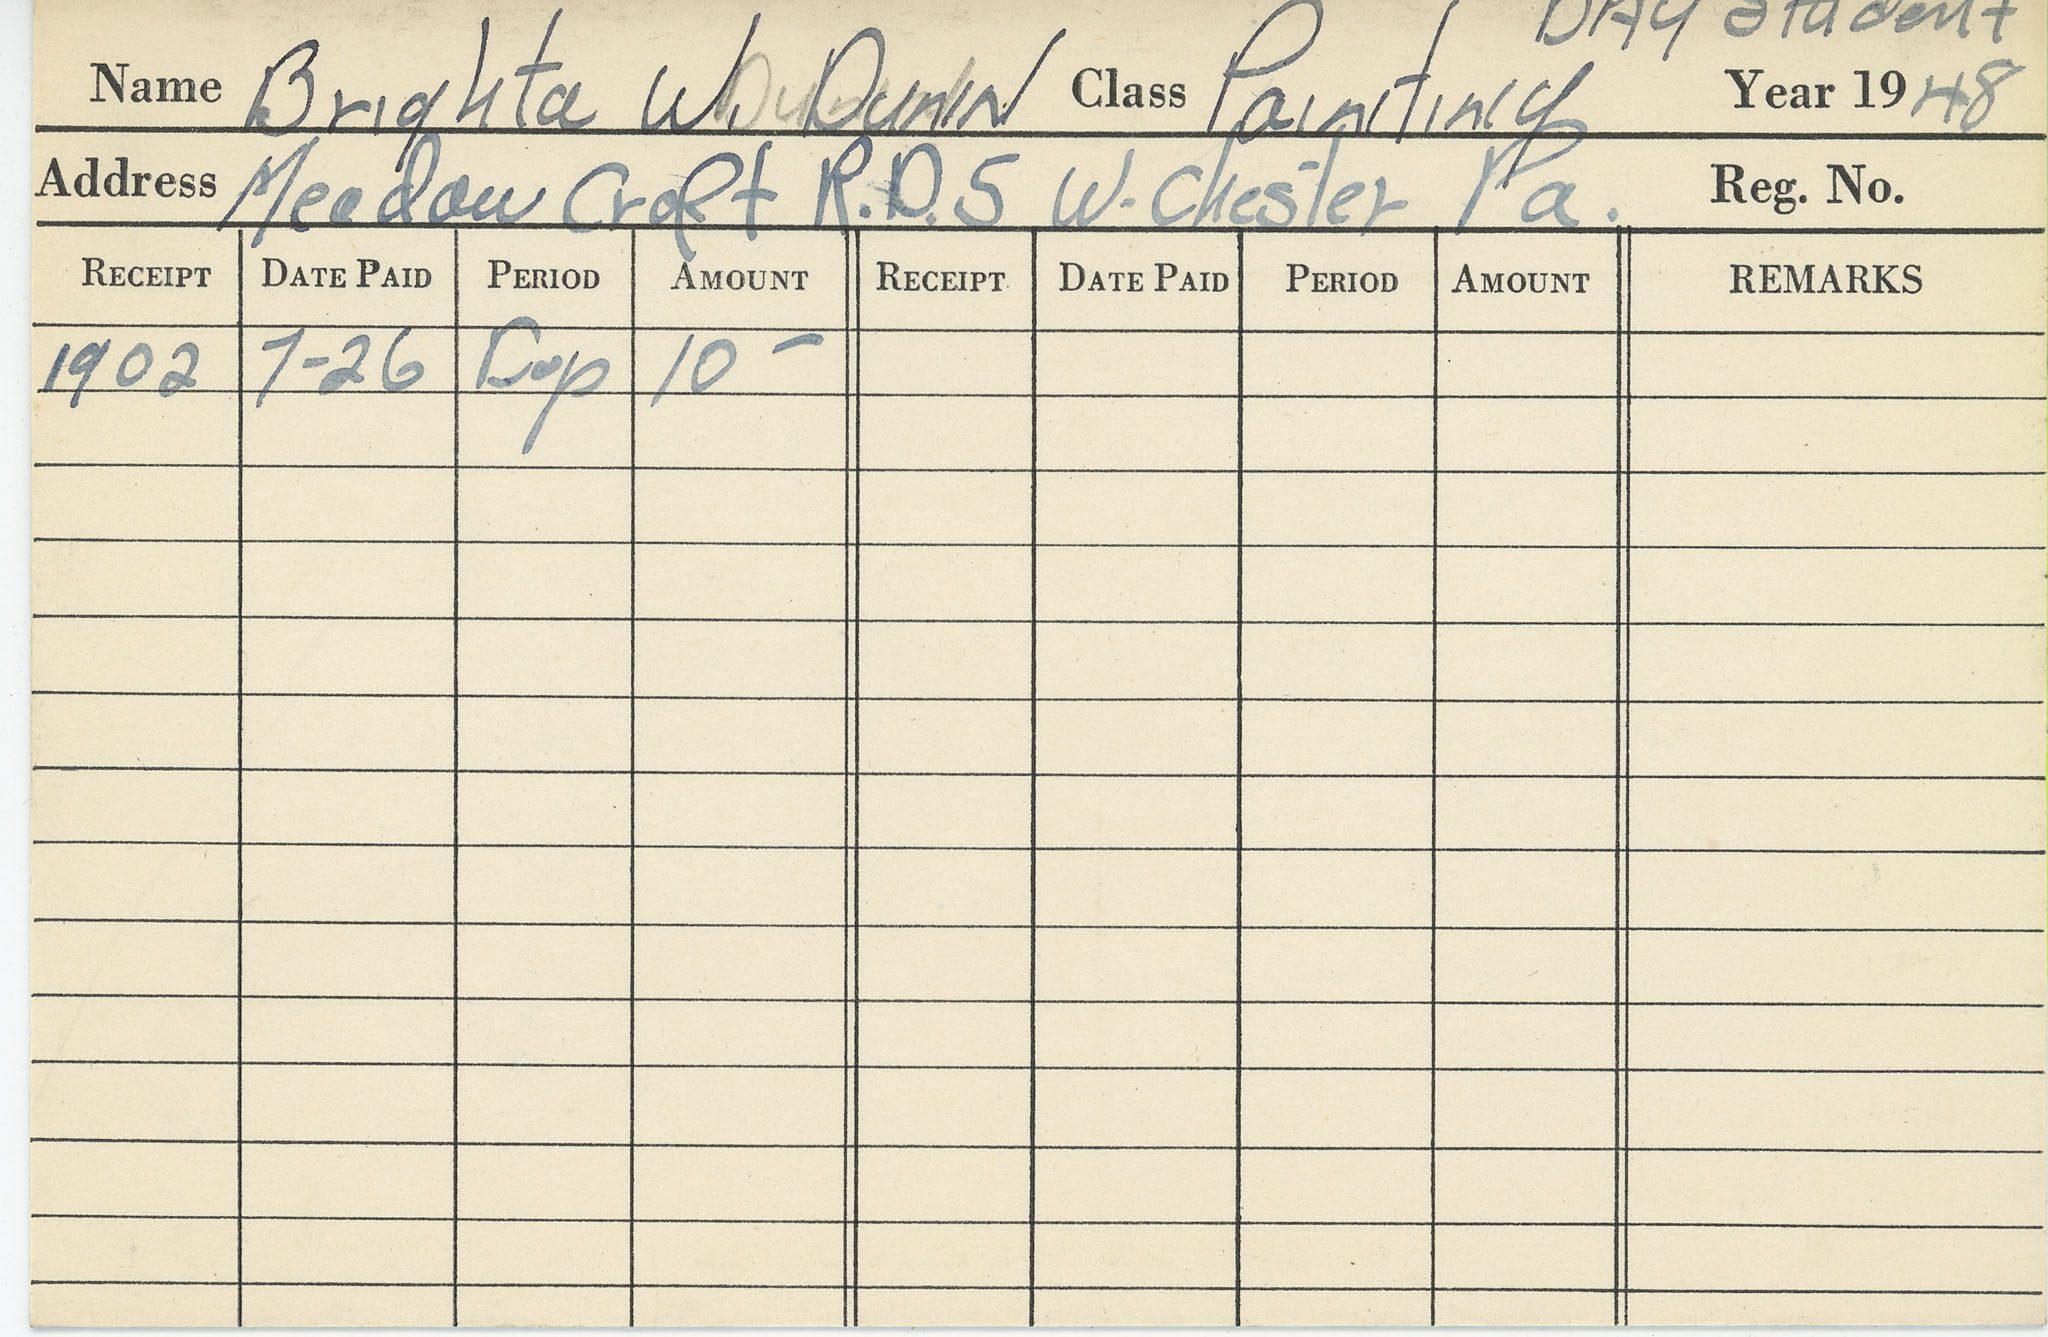 DAY Student
Name Brighta W. Dunin Class Painting Year 1948
Address Meadow Croft R.D.5 W. Chester Pa. Reg. No.
RECEIPT DATE PAID PERIOD AMOUNT RECEIPT DATE PAID PERIOD AMOUNT REMARKS
1902 7-26 Dep 10 -